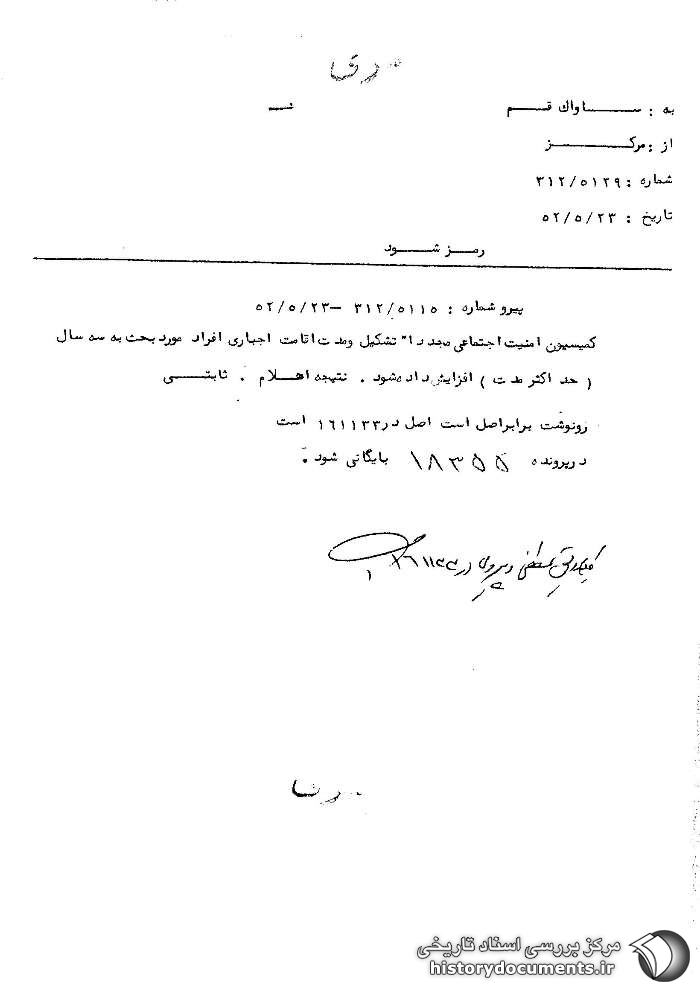 به : ساواك قم
از : مركز
شماره : ۳۱۲/۵۱۲۹
تاریخ : ۵۲/۵/۲۳
رمز شود
پیرو شماره : ۳۱۲/۵۱۱۵ – ۵۲/۵/۲۳
كمیسیون امنیت اجتماعی مجددا" تشكیل ومدت اقامت اجباری افراد مورد بحث به سه سال
( حد اكثر مدت ) افزایش داده شود . نتیجه اعلام . ثابتی
رونوشت برابر اصل است اصل در ۱۶۱۱۳۳ است
در پرونده ۱۸۳۵۵ بایگانی شود .
در ۱۶۱۱۳۳
مركز بررسی اسناد تاریخی
historydocuments.ir